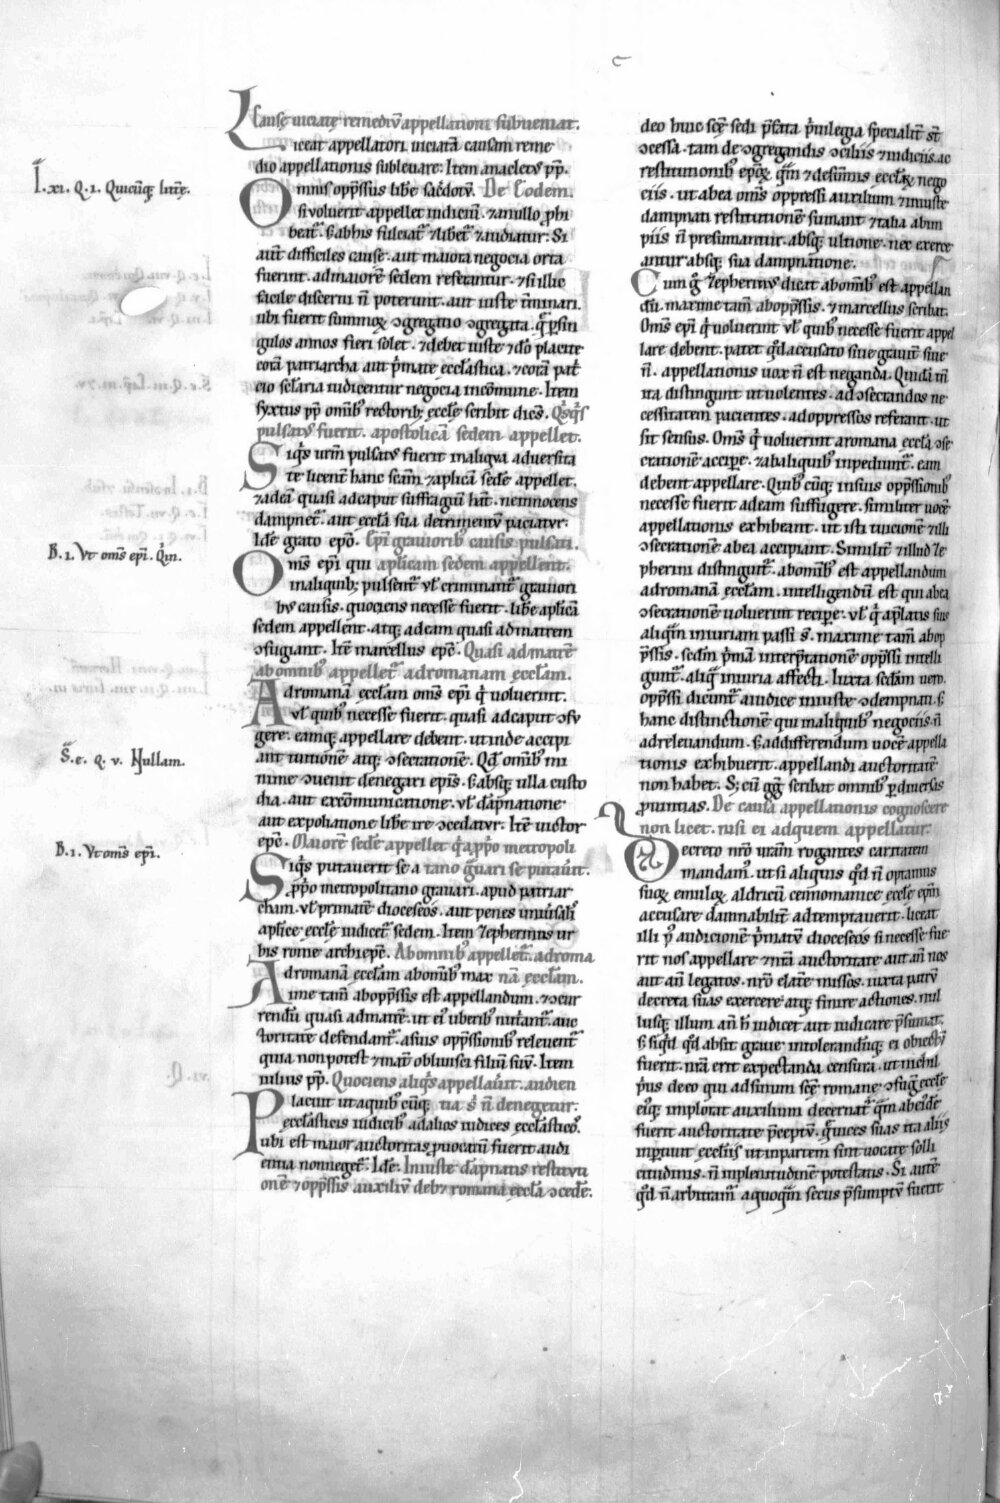 c
Causę uiciatę remediū appellationi subueniat.
Liceat appellatori uiciatā causam reme
dio appellationis subleuare. Itē anacletꝰ pp̄.
Omnis opp̄ssus libe sac̄dotū. De Eodem.
si uoluerit appellet iudiciū. ⁊ a nullo ꝓhi
beat᷑. s; ab his fulciat᷑ ⁊ libet᷑ ⁊ audiatur. Si
aut̄ difficiles causę. aut maiora negocia orta
fuerint. ad maiorē sedem referantur. ⁊ si illic
facile discerni n̄ poterunt. aut iuste t̄minari.
ubi fuerit summoꝝ ↄgregatio ↄgregata. q̄ ꝑ sin
gulos annos fieri solet. ⁊ debet iuste ⁊ dō placite
corā patriarcha aut p̄mate eccłastica. ⁊ corā pat̄
cio sęłaria iudicentur negocia in cōmune. Item
syxtus pp̄ omīb; rectorib; ecclę scribit dicēs. Qisq̄s
pulsatꝰ fuerit. apostolicā sedem appellet.
Siq̄s ur̄m pulsatꝰ fuerit in aliqua aduersita
te licent̄ hanc scām ⁊ aplicā sedē appellet.
⁊ ad eā quasi ad caput suffragiū hāt. ne innocens
dampnet᷑. aut ecclā sua detrimentū paciatur.
Idē grato epō. Ep̄i grauiorib; causis pulsati.
Om̄s epi qui aplicam sedem appellent.
in aliquib; pulsent᷑ uł criminant᷑ grauiori
bꝰ causis. quociens necesse fuerit. libe aplicā
sedem appellent. atq; ad eam quasi ad matrem
ↄfugiant. Itē marcellus epē. Quasi ad matrē
ab omnib; appellet᷑ ad romanam ecclam.
Ad romanā ecclam om̄s epi q̄ uoluerint.
uł quib; necesse fuerit. quasi ad caput ↄfu
gere. eamq; appellare debent. ut inde accipi
ant tuitionē atq; ↄsecrationē. Qđ omīb; mi
nime ↄuenit denegari epīs. s; absq; ulla custo
dia. aut excōmunicatione. uł dāpnatione
aut expoliatione libe ire ↄcedatur. Itē uictor
epē. Maiorē sedē appellet q̄ a ꝓpō metropoli
Siq̄s putauerit se a tano ḡuari se putau̅t.
ꝓpō metropolitano grauari. apud patriar
cham. uł primatē dioceseos. aut penes uniu̅sał
aplice ecclę iudicet᷑ sedem. Itē Zepherinus ur
bis rome archiepē. Ab omnib; appellet᷑ ad roma
Ad romanā ecclam ab omīb; max nā ecclam.
ime tam̄ ab opp̄ssis est appellandum. ⁊ ↄcur
rendū quasi ad matrē. ut eiꝰ uberib; nut̄ant᷑. auc
toritate defendant᷑. a suis opp̄ssionib; releuent᷑
quia non potest ⁊ mat̄ obliuisci filiū suū. Item
iulius pp̄. Quociens aliq̄s appellau̅t. audien
Placuit ut a quib;cūq; tia s; n̄ denegetur.
ecclasticis iudicib; ad alios iudices ecclasticos.
ubi est maior auctoritas ꝓuocatū fuerit. audi
entia non neget᷑. Idē. Iniuste dāpnatis restituti
onē ⁊ opp̄ssis auxiliū deb; romana ecclā ↄcedē.
deo huic scę sedi p̄fata p̄uilegia specialit̄ st̄
ↄcessa. tam de ↄgregandis ↄciliis ⁊ iudiciis ac
restitutionib; epoꝝ. q̄m ⁊ de sum̄is ecclaꝝ nego
ciis. ut ab ea om̄s oppressi auxilium ⁊ iniuste
dampnati restitutionē sumant ⁊ talia ab im
piis n̄ presumantur. absq; ultione. nec exerce
antur absq; sua dampnatione.
Cum g̊ Zepherinꝰ dicat ab omīb; est appellan
dū. maxime tam̄ ab opp̄ssis. ⁊ marcellus scribat.
Om̄s epi q̄ uoluerint uł quib; necesse fuerit appel
lare debent. patet qđ accusato siue grauet̄ siue
n̄. appellationis uox n̄ est neganda. Quidā tn̄
ita distingunt ut uolentes. ad ↄsecrandos ne
cessitatem pacientes. ad oppressos referant. ut
sit sensus. Om̄s q̄ uoluerint a romana ecclā ↄse
crationē accipe. ⁊ ab aliquib; inpediunt᷑. eam
debent appellare. Quib; cūq; in suis opp̄ssionib;
necesse fuerit ad eam suffugere. similiter uocē
appellationis exhibeant. ut isti tuicionē ⁊ illi
ↄsecrationē ab ea accipiant. Similit̄ ⁊ illud Ze
pherini distinguit᷑. ab omīb; est appellandum
ad romanā ecclam. intelligendū est qui ab ea
ↄsecrationē uoluerint recipe. uł q̄ a p̄latis suis
aliq̄m iniuriam passi s̄. maxime tam̄ ab op
p̄ssis. sedm p̄mā interp̄tationē opp̄ssi intelli
gunt᷑. aliq̄ iniuria affecti. Iuxta sedām uero.
opp̄ssi dicunt᷑ a iudice iniuste ↄdempnati. s;
hanc distinctionē qui in aliquib; negociis n̄
ad releuandum. s; ad differendum uocē appella
tionis exhibuerit. appellandi auctoritatē
non habet. S; cū g̊g̊ scribat omnib; ꝑ diuersas
ꝓuintias. De causa appellationis cognoscere
non licet. nisi ei ad quem appellatur.
Decreto nr̄o ur̄am rogantes caritatem
mandam᷒. ut si aliquis qđ n̄ optamus
suoꝝ emuloꝝ aldricū cennomanice ecclę ep̄m
accusare damnabilit̄ adtemptauerit. liceat
illi p̄ audicionē p̄matū dioceseos si necesse fue
rit nos appellare ⁊ nr̄a auctoritate aut an̄ nos
aut an̄ legatos. nr̄o elatē missos. iuxta patrū
decreta suas exercere atq; finire actiones. nul
lusq; illum an̄ h̄ iudicet aut iudicare p̄sumat.
s; siq̄d qđ absit graue intolerandūq; ei obiectū
fuerit. nr̄a erit expectanda censura. ut nichil
p̄us de eo qui ad sinum scę romane ↄfug̅ ecclę
eiꝰq; implorat auxilium decernat᷑ q̄m ab eiꝰdē
fuerit auctoritate p̄ceptū. q̄ uices suas ita aliis
inp̄tiuit ecclīis ut in partem sint uocate solli
citudinis. n̄ in plenitudinē potestatis. Si autē
qđ n̄ arbitram᷒ a quoq̄m secus p̄sumptū fuerit
I. xi. Q. 1. Quicūq; litē.
B. 1. Vt om̄s epī. Q̄in.
S. e. Q. v. Nullam.
B. 1. Vt om̄s epī.